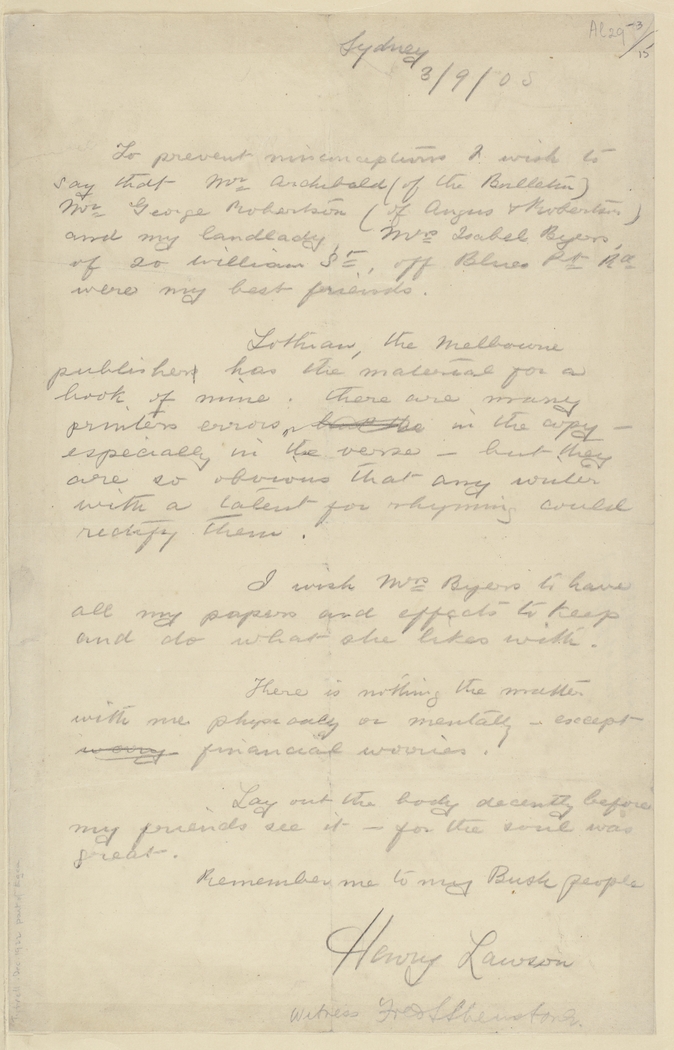 Al 29 -3/15
Sydney
3/9/05
To prevent misconceptions I wish to
say that Mr Archibald (of the Bulletin)
Mr George Robertson (of Angus & Robertson)
and my landlady, Mrs Isabel Byers,
of 20 William St, off Blues Pt Rd
were my best friends.
Lothian, the Melbourne
publisher has the material for a
book of mine. there are many
printers errors, in the copy —
especially in the verse — but they
are so obvious that any writer
with a talent for rhyming could
rectify them.
I wish Mrs Byers to have
all my papers and effects to keep
and do what she likes with.
There is nothing the matter
with me physically or mentally — except
worry financial worries.
Lay out the body decently before
my friends see it — for the soul was
great.
Remember me to my Bush people
Henry Lawson
Witness Fred